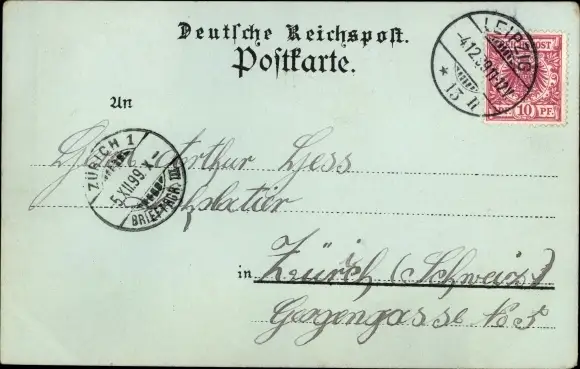 Deutsche Reichspost.
Postkarte.
LEIPZIG
-4.12.99
* 13 n
REICHSPOST
10 PF
An
Herrn Arthur Hess
ZÜRICH 1
5.XII.99.X-
BRIEFTRGR. VIII
in Zürich (Schweiz)
Gerzengasse No 5